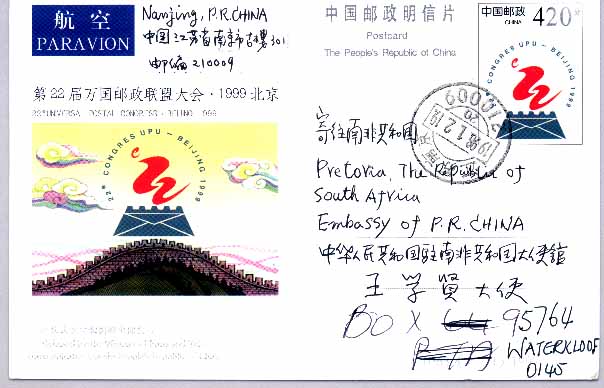 航空
PARAVION
Nanjing, P.R.CHINA
中国江苏省南京市古楼301
邮编 210009
第22届万国邮政联盟大会·1999·北京
22nd CONGRES UPU - BEIJING 1999
中国邮政明信片
Postcard
The People's Republic of China
中国邮政
CHINA
420分
CONGRES UPU - BEIJING 1999
210009
寄往南非共和国
Pretoria, The Republic of
South Africa
Embassy of P.R.CHINA
中华人民共和国驻南非共和国大使馆
王学賢大使
BOX 95764
WATERKLOOF
0145